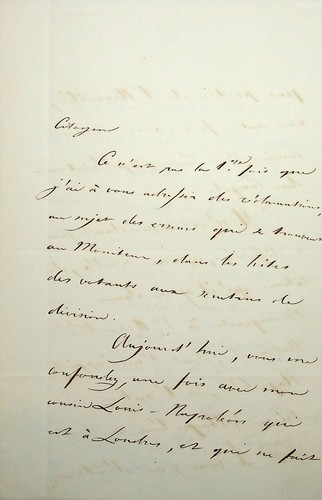 Citoyen
Ce n'est pas la 1ère fois que
j'ai à vous adresser des réclamations,
au sujet des erreurs qui se trouvent
au Moniteur, dans les listes
des votants aux scrutins de
division.
Aujourd'hui, vous me
confondez, une fois avec mon
cousin Louis-Napoléon qui
est à Londres, et qui ne fait